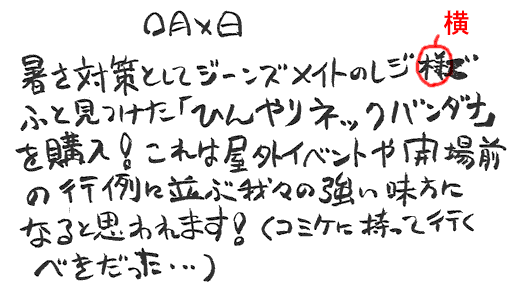 〇月×日
横
暑さ対策としてジーンズメイトのレジ様で
ふと見つけた「ひんやりネックバンダナ」
を購入！これは屋外イベントや開場前
の行例に並ぶ我々の強い味方に
なると思われます！（コミケに持って行く
べきだった…）